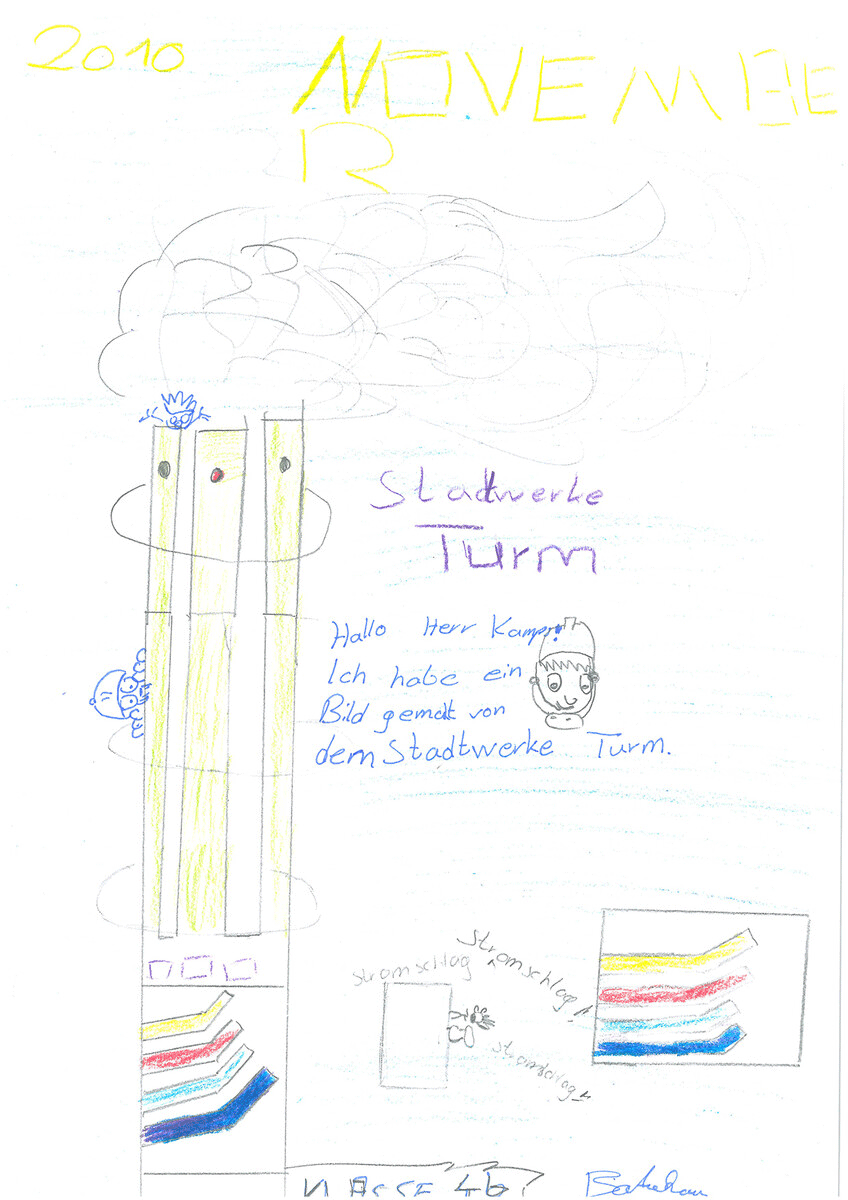 2010
NOVEMBE
R
Stadtwerke
Turm
Hallo Herr Kamps!
Ich habe ein
Bild gemalt von
dem Stadtwerke Turm.
stromschlag
Stromschlag!
stromschlag
KLASSE 4b